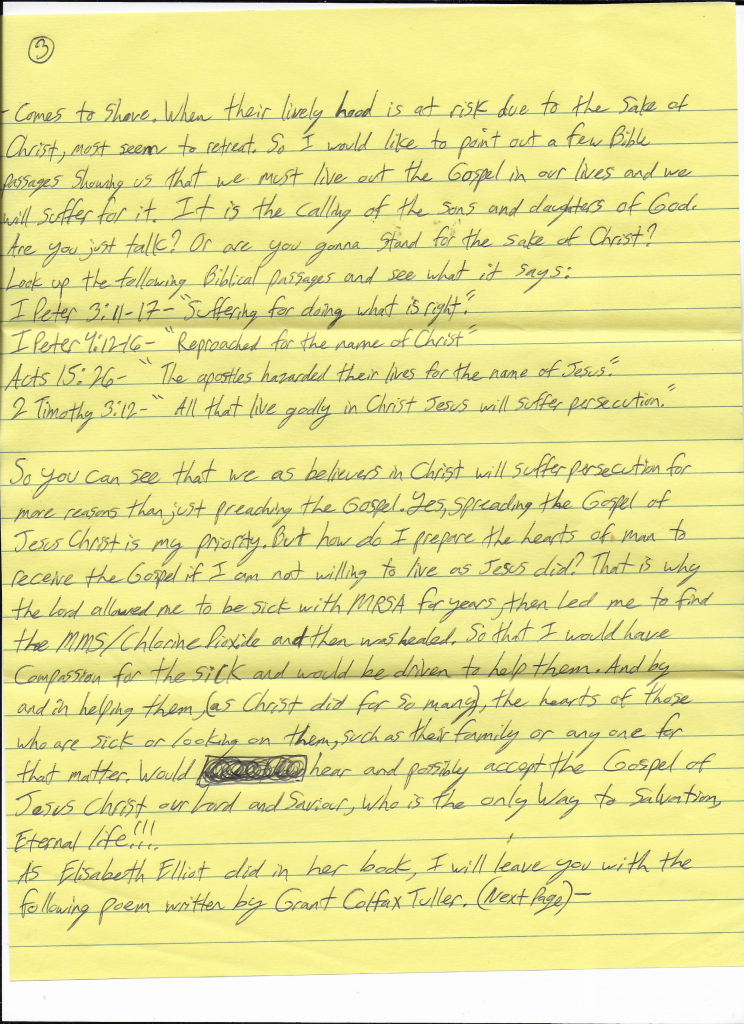 3
- Comes to shove. When their lively hood is at risk due to the sake of
Christ, most seem to retreat. So I would like to point out a few Bible
passages showing us that we must live out the Gospel in our lives and we
will suffer for it. It is the calling of the sons and daughters of God.
Are you just talk? Or are you gonna stand for the sake of Christ?
Look up the following Biblical passages and see what it says:
I Peter 3:11-17- "Suffering for doing what is right."
I Peter 4:12-16- "Reproached for the name of Christ"
Acts 15:26- "The apostles hazarded their lives for the name of Jesus."
2 Timothy 3:12- "All that live godly in Christ Jesus will suffer persecution."
So you can see that we as believers in Christ will suffer persecution for
more reasons than just preaching the Gospel. Yes, spreading the Gospel of
Jesus Christ is my priority. But how do I prepare the hearts of man to
receive the Gospel if I am not willing to live as Jesus did? That is why
the Lord allowed me to be sick with MRSA for years, then led me to find
the MMS/Chlorine Dioxide and then was healed. So that I would have
Compassion for the sick and would be driven to help them. And by
and in helping them, (as Christ did for so many), the hearts of those
who are sick or looking on them, such as their family or any one for
that matter. Would hear and possibly accept the Gospel of
Jesus Christ our Lord and Saviour, who is the only Way to Salvation,
Eternal life!!!.
As Elisabeth Elliot did in her book, I will leave you with the
following poem written by Grant Colfax Tuller. (Next Page)-